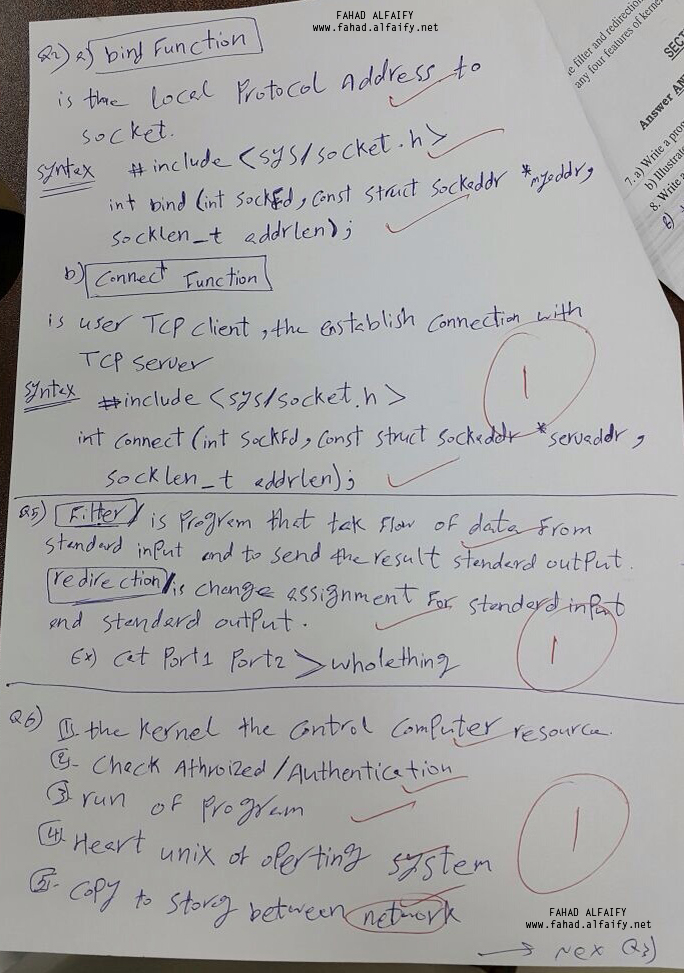 FAHAD ALFAIFY
www.fahad.alfaify.net
Q2) a) bind Function
is the local Protocol Address to
socket.
syntax #include <sys/socket.h>
int bind (int sockFd, const struct sockaddr *myaddr,
socklen_t addrlen);
b) Connect Function
is user TCP client, the enstablish connection with
TCP server
1
syntax #include <sys/socket.h>
int connect (int sockFd, const struct sockaddr *servaddr,
socklen_t addrlen);
Q5) Filter / is Program that tak Flow of data From
standard input and to send the result standard output.
redirection / is change assignment For standard input
and standard output.
1
Ex) cat Port1 Port2 > wholething
Q6) 1- the kernel the control computer resource.
2- Check Athroized/Authentication
3 run of Program
1
4 Heart unix of operting system
5- copy to storg between network
FAHAD ALFAIFY
www.fahad.alfaify.net
→ Nex Q3)
e filter and redirection
any four features of kerne
SECT
Answer AN
7. a) Write a pro
b) Illustrate
8. Write a